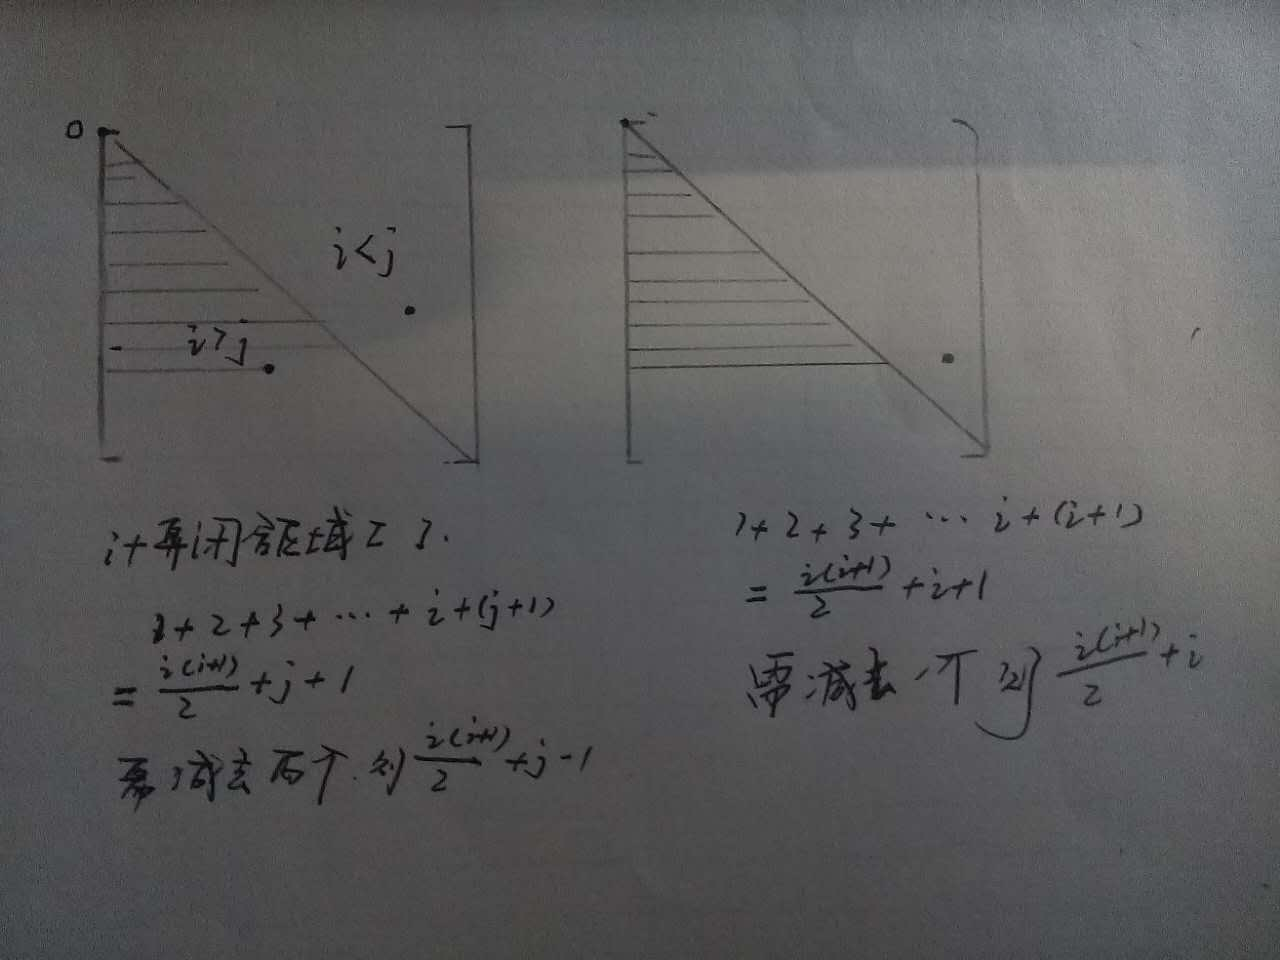 0
i<j
i>j
计算闭区域[ ].
1+2+3+ ··· + i+(j+1)
= i(i+1)/2 +j+1
需减去两个 则 i(i+1)/2 +j-1
1+2+3+ ··· i+(i+1)
= i(i+1)/2 +i+1
需减去一个 则 i(i+1)/2 +i